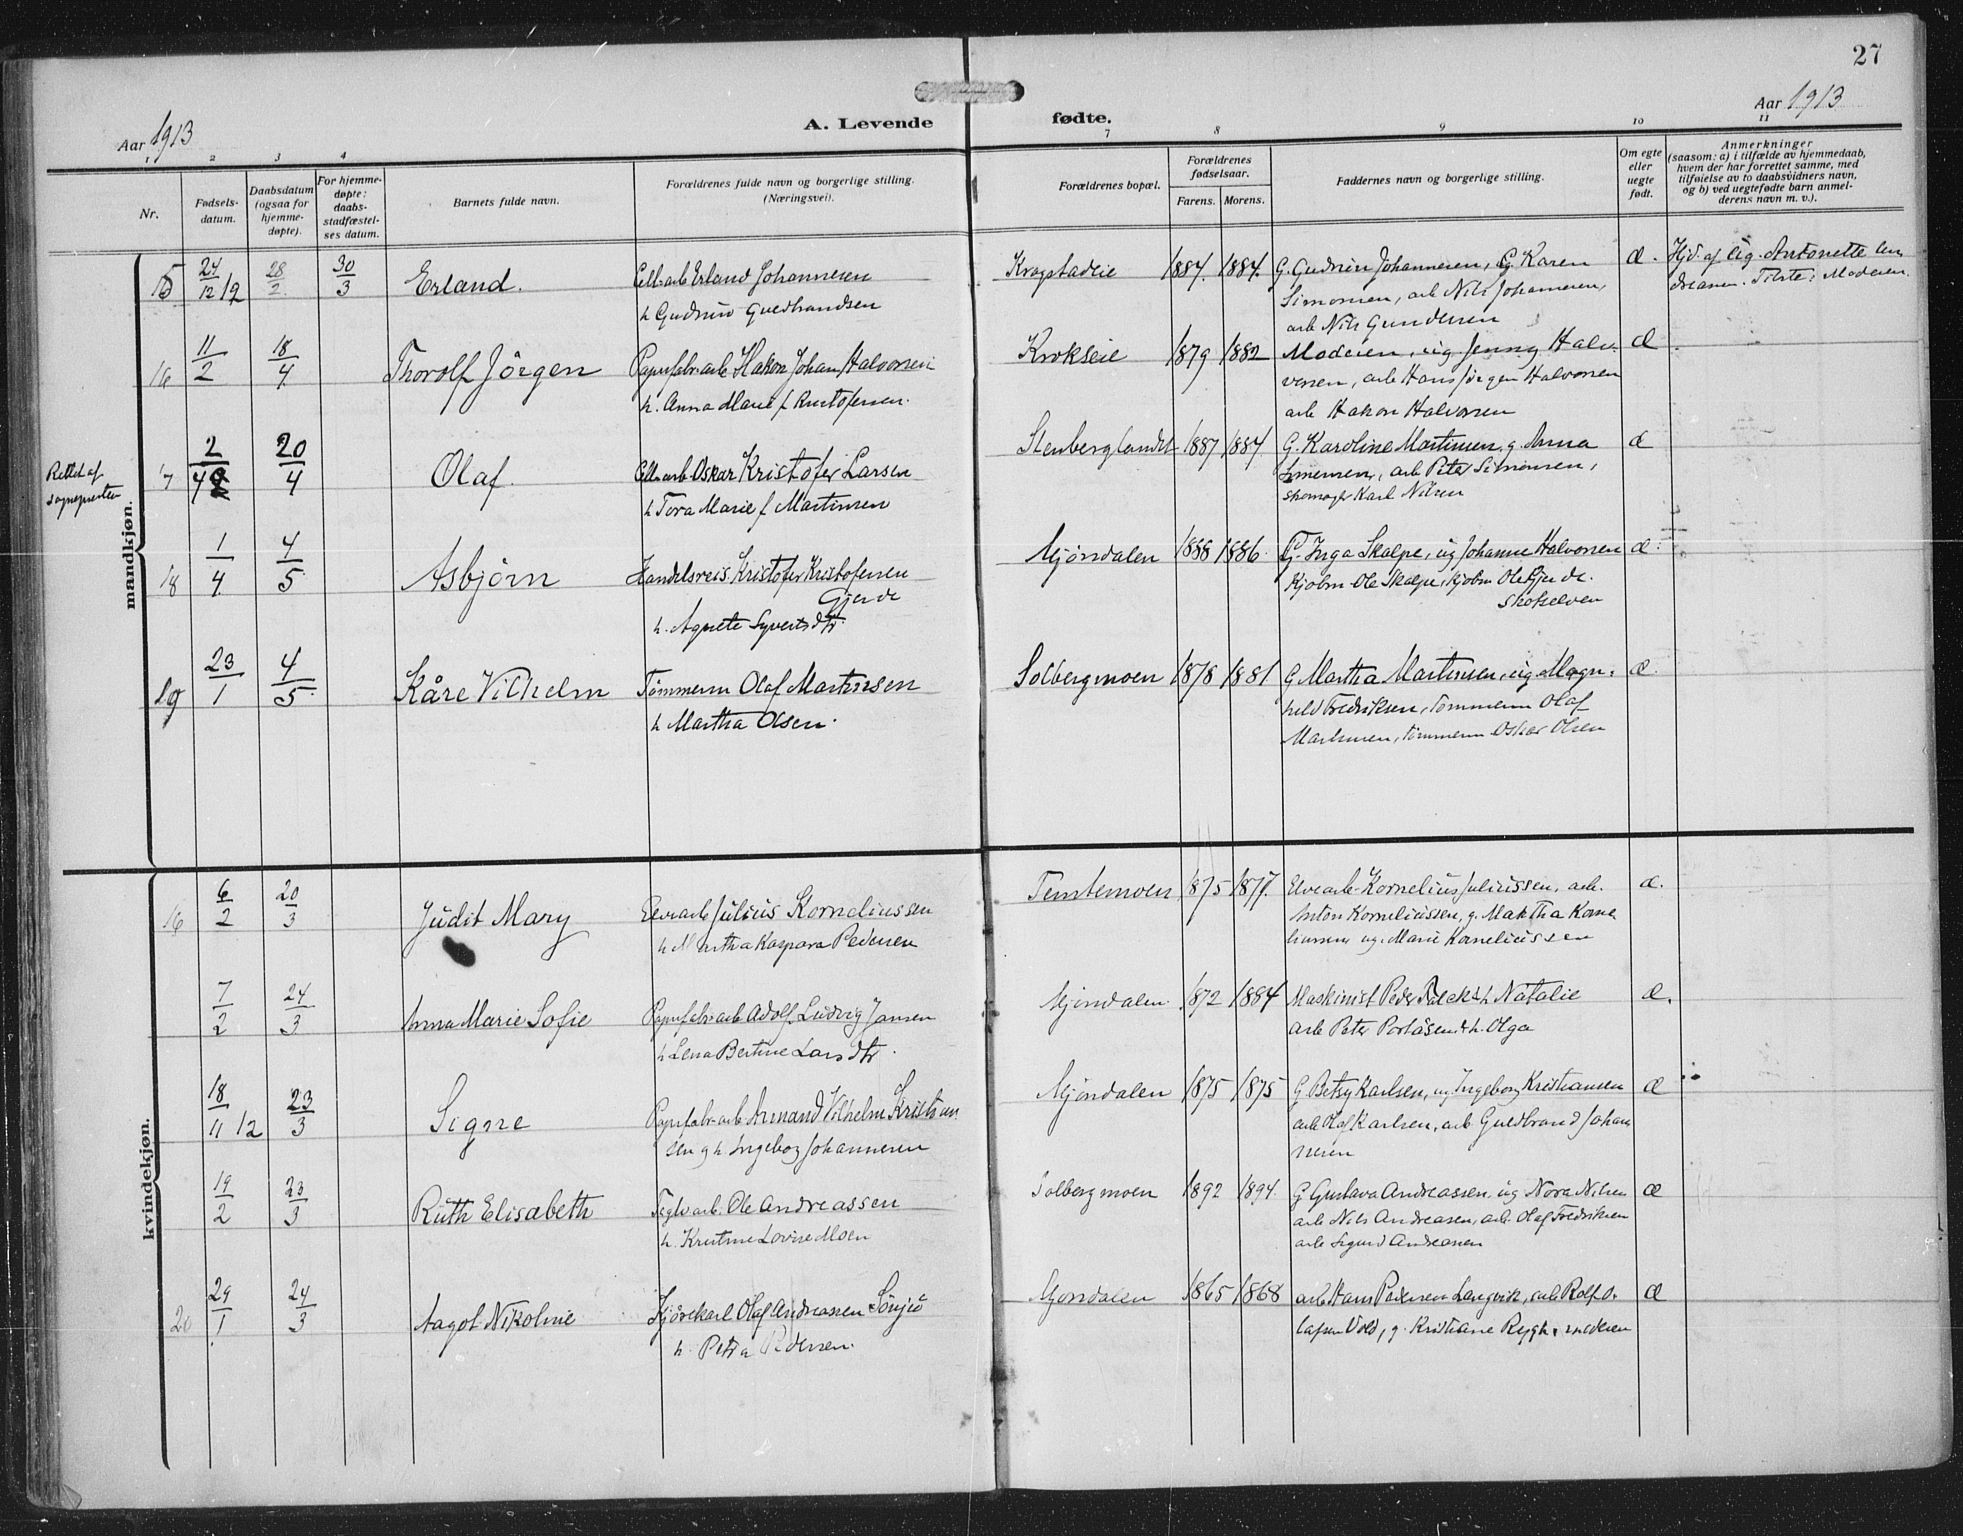 27
Aar 1913
A. Levende fødte.
Aar 1913
1 2 3 4 7 8 9 10 11
Nr.
Fødsels-
datum.
Daabsdatum
(ogsaa for
hjemme-
døpte).
For hjemme-
døpte:
daabs-
stadfæstel-
ses datum.
Barnets fulde navn.
Forældrenes fulde navn og borgerlige stilling.
(Næringsvei).
Forældrenes bopæl.
Forældrenes
fødselsaar.
Farens. Morens.
Faddernes navn og borgerlige stilling.
Om egte
eller
uegte
født.
Anmerkninger
(saasom: a) i tilfælde av hjemmedaab,
hvem der har forrettet samme, med
tilføielse av to daabsvidners navn,
og b) ved uegtefødte barn anmel-
derens navn m. v.).
mandkjøn.
15 24/12 12 28/2 30/3 Erland. Cell-arb Erland Johannesen
h Gudrun Guldbrandsen
Krogstadeie 1884. 1884. G. Gudrun Johannesen, g Karen
Simonsen, arb Nils Johannesen,
arb Nils Gundersen
æ. Hjd. af ug. Antonette An
dreasen. Tilste: Moderen
16 11/2 18/4 Thorolf Jörgen Papirfabr-arb Hakon Johan Halvorsen
h. Anna Marie f Kristofersen.
Krokseie 1879 1882 Moderen, ug Jenny Halv-
orsen, arb Hans Jørgen Halvorsen
arb Hakon Halvorsen
æ
Rettet af
sognepresten
17 2/4 20/4 Olaf. Cell-arb Oskar Kristofer Larsen
h Tora Marie f Martinsen
Stenberglandet 1887 1884 G. Karoline Martinsen, g. Anna
Simensen, arb Peter Simonsen,
skomager Karl Nilsen
æ
18 1/4 4/5 Asbjørn Handelsreis. Kristofer Kristofersen
Gjerde
h. Agnete Syvertsdtr.
Mjøndalen 1888 1886. G. Inga Skalpe, ug Johanne Halvorsen
Kjøbm Ole Skalpe, kjøbm Ole Gjerde.
Skotselven
æ.
19 23/1 4/5. Kåre Vilhelm Tømmerm Olaf Martinsen
h Martha Olsen.
Solbergmoen 1878 1881 G Martha Martinsen, ug Magn-
hild Fredriksen, tømmerm Olaf
Martinsen, tømmerm Oskar Olsen
æ.
kvindekjøn.
16 6/2 20/3 Judit Mary Elvearb Julius Korneliussen
h Martha Kaspara Pedersen
Temtemoen 1875 1877. Elvearb Kornelius Juliussen, arb.
Anton Korneliussen, g. Martha Korne
liussen, ug. Marie Korneliussen
æ.
7/2 24/3 Anna Marie Sofie Papirfabr-arb Adolf Ludvig Jansen
h Lena Bertine Larsdtr.
Mjøndalen. 1872 1884 Maskinist Peder h Natalie
arb Peter h. Olga
æ.
18/11 12 23/3 Signe Papirfabr-arb Armand Vilhelm Kristian
sen g h. Ingeborg Johannesen
Mjøndalen 1875 1875 G Betsy Karlsen, ug Ingeborg Kristiansen
arb Olaf Karlsen, arb Guldbrand Johan
nesen
æ
19/2 23/3 Ruth Elisabeth Teglv-arb. Ole Andreassen
h. Kristine Lovise Moen
Solbergmoen 1892 1894. G Gustava Andreassen, ug Nora Nilsen
arb Nils Andreasen, arb. Olaf Fredriksen
arb Sigurd Andreasen
æ
20 29/1 24/3 Aagot Nikoline Kjørekarl Olaf Andreassen
h. Petra Pedersen.
Mjøndalen 1865 1868 arb Hans Pedersen Langvik, arb Rolf O-
lafsen Vold, g. Kristiane Rygh, moderen
æ